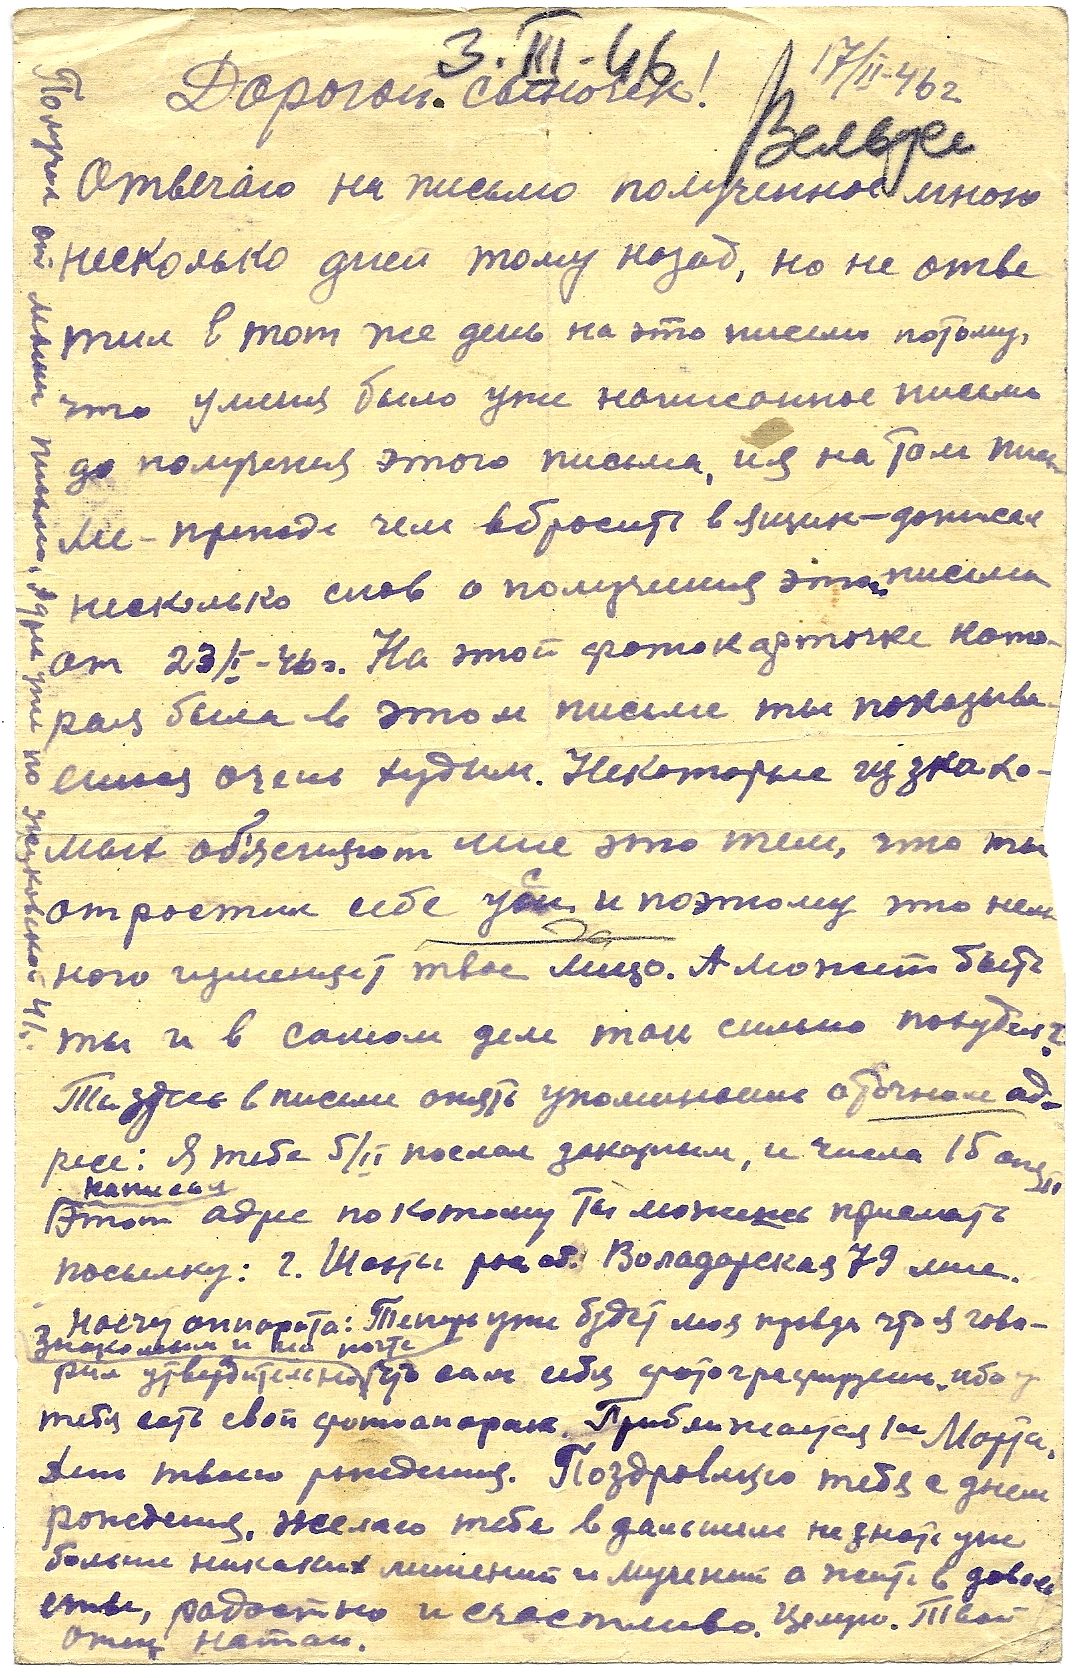 3.III-46
17/II-46г
Дорогой сыночек!
Вельце
Отвечаю на письмо полученное мною
несколько дней тому назад, но не отве
тил в тот же день на это письмо потому,
что у меня было уже написанное письмо
до получения этого письма, и я на том пись
ме - прежде чем вбросить в ящик - дописал
несколько слов о получения этого письма
от 23/I-46г. На этой фотокарточке кото-
рая была в этом письме ты показыва-
ешься очень худым. Некоторые из знако-
мых объясняют мне это тем, что ты
отростил себе усы и поэтому это нем
ного изменяет твое лицо. А может быть
ты и в самом деле так сильно похудел?
Ты здесь в письме опять упоминаешь о точном ад-
ресе: Я тебе 5/II послал заказным, и числа 15 опять
написал
Этот адрес по которому ты можешь присылать
посылку: г. Шахты рос. об. Воладарская 79 мне.
Насчет аппарата: Теперь уже будет моя правда что я гово-
знакомым и на почте
рил утвердительно что сам себя фотографируешь, ибо у
тебя есть свой фотоапарат. Приближается 1ое Марта,
день твоего рождения. Поздравляю тебя с днем
рождения, желаю тебе в дальшем не знать уже
больше никаких лишений и мучений а жить в доволь
стве, радостно и счастливо. Целую. Твой
отец Натан.
Получил от мамы письмо, Адрес уже по Жуковской 41.